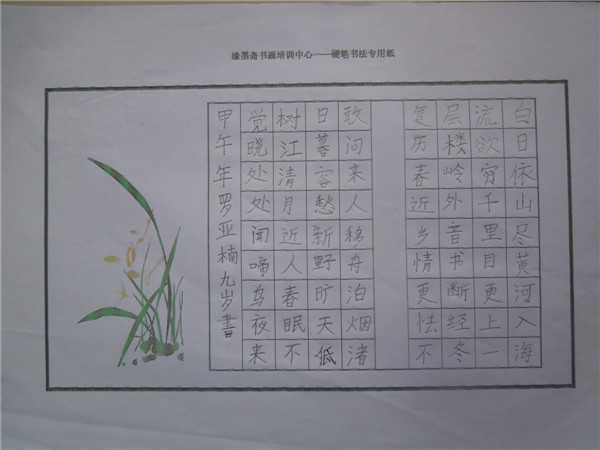 缘墨斋书画培训中心——硬笔书法专用纸
白日依山尽黄河入海
流欲穷千里目更上一
层楼岭外音书断经冬
复历春近乡情更怯不
敢问来人移舟泊烟渚
日暮客愁新野旷天低
树江清月近人春眠不
觉晓处处闻啼鸟夜来
甲午年罗亚楠九岁書